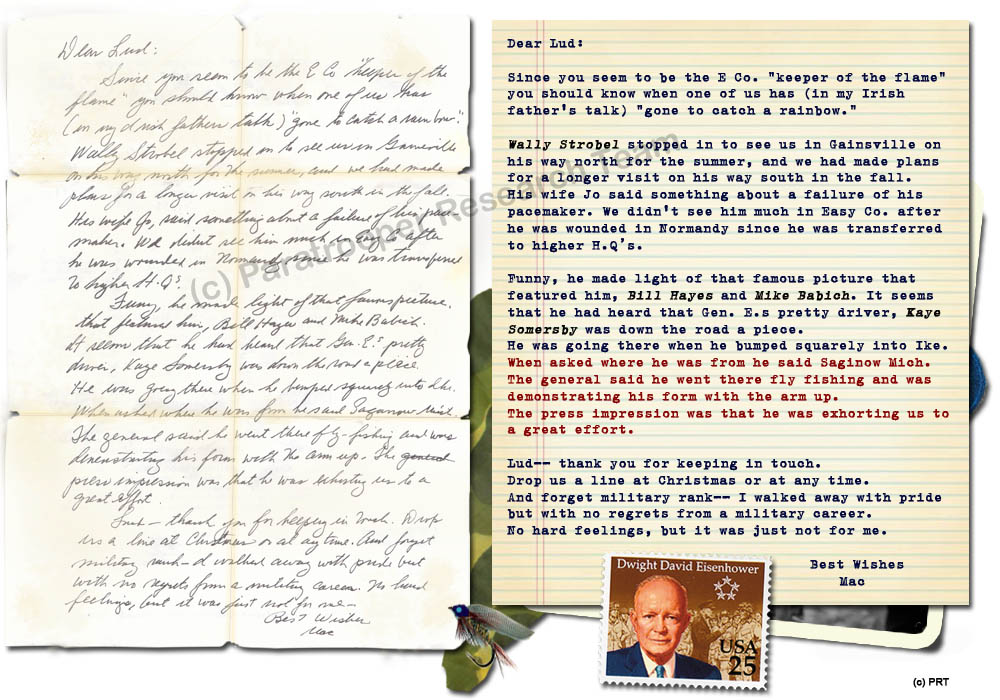 Dear Lud:
Since you seem to be the E Co "keeper of the
flame" you should know when one of us has
(in my Irish fathers talk) "gone to catch a rainbow".
Wally Strobel stopped in to see us in Gainsville
on his way north for the summer, and we had made
plans for a longer visit on his way south in the fall.
His wife Jo, said something about a failure of his pace
maker. We didnt see him much in Easy Co after
he was wounded in Normandy since he was transfered
to higher H.Q's.
Funny, he made light of that famous picture
that featured him, Bill Hayes and Mike Babich.
It seems that he had heard that Gen. E.s pretty
driver, Kaye Somersby was down the road a piece.
He was going there when he bumped squarely into Ike.
When asked where he was from he said Saganow Mich.
The general said he went there fly-fishing and was
demonstrating his form with the arm up. The general
press impression was that he was exhorting us to a
great effort.
Lud - thank you for keeping in touch. Drop
us a line at Christmas or at any time. And forget
military rank - I walked away with pride but
with no regrets from a military career. No hard
feelings, but it was just not for me -
Best Wishes
Mac
Dear Lud:
Since you seem to be the E Co. "keeper of the flame"
you should know when one of us has (in my Irish
father's talk) "gone to catch a rainbow."
Wally Strobel stopped in to see us in Gainsville on
his way north for the summer, and we had made plans
for a longer visit on his way south in the fall.
His wife Jo said something about a failure of his
pacemaker. We didn't see him much in Easy Co. after
he was wounded in Normandy since he was transferred
to higher H.Q's.
Funny, he made light of that famous picture that
featured him, Bill Hayes and Mike Babich. It seems
that he had heard that Gen. E.s pretty driver, Kaye
Somersby was down the road a piece.
He was going there when he bumped squarely into Ike.
When asked where he was from he said Saginow Mich.
The general said he went there fly fishing and was
demonstrating his form with the arm up.
The press impression was that he was exhorting us to
a great effort.
Lud-- thank you for keeping in touch.
Drop us a line at Christmas or at any time.
And forget military rank-- I walked away with pride
but with no regrets from a military career.
No hard feelings, but it was just not for me.
Best Wishes
Mac
(c) Paratrooper Research Team
Dwight David Eisenhower
USA
25
(c) PRT